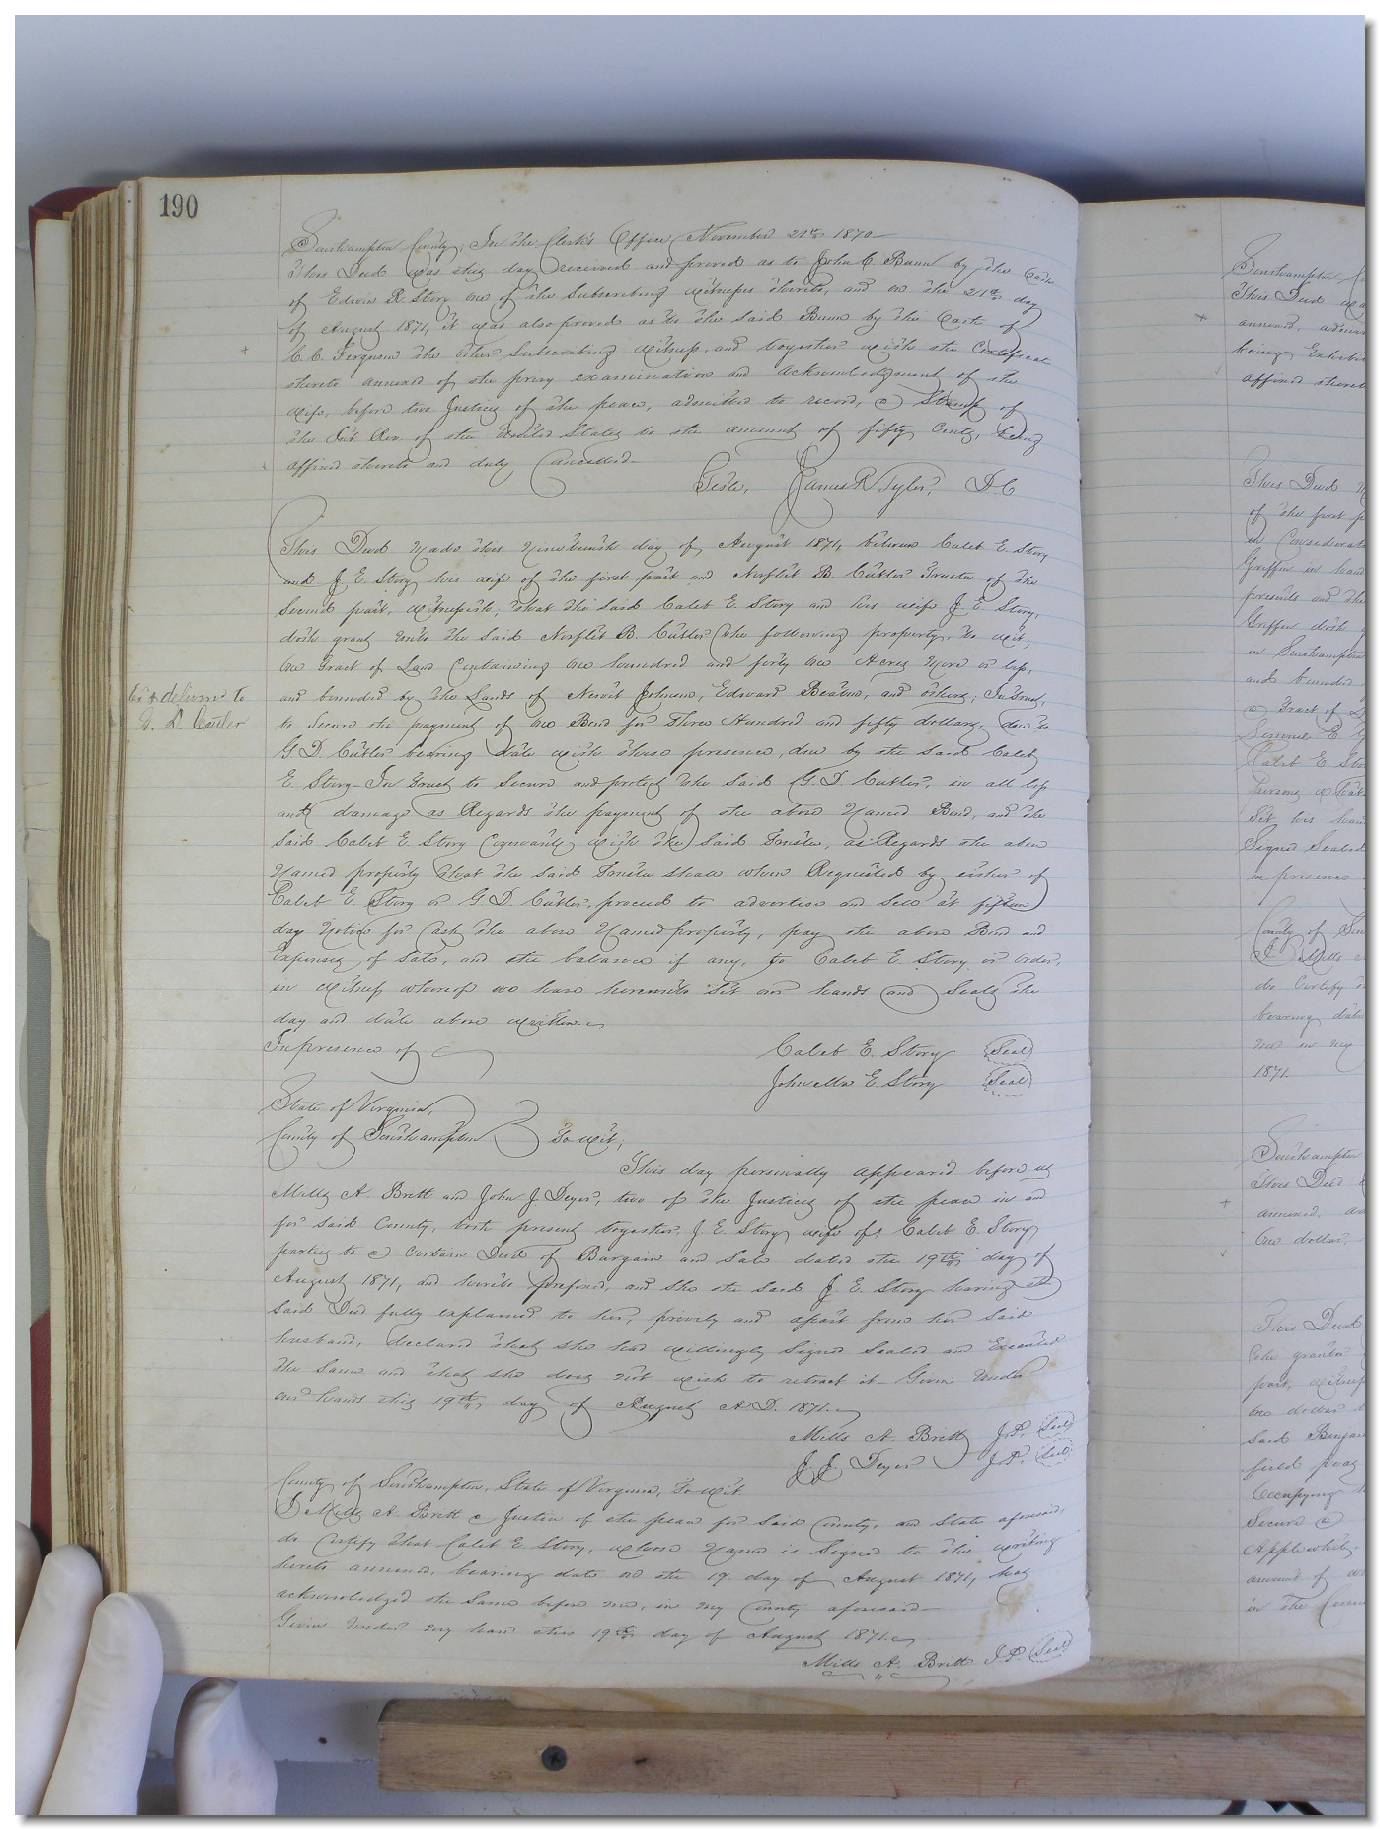 190
Southampton County, In the Clerk's Office November 21st 1870
This Deed was this day received and proved as to John C Bunn by the Oath
of Edwin R. Story one of the Subscribing witnesses thereto, and on the 21st day
of August 1871, it was also proved as to the said Bunn by the Oath of
C. C. Ferguson the other Subscribing witness, and together with the Certificate
thereto annexed of the privy examination and acknowledgment of the
wife, before two Justices of the peace, admitted to record, a Stamp of
the Int. Rev. of the United States to the amount of fifty Cents, being
affixed thereto and duly Cancelled
Teste, James R. Tyler, D.C
This Deed Made this Nineteenth day of August 1871, between Caleb E. Story
and J. E. Story his wife of the first part and B. Cutler Trustee of the
Second part, witnesseth; that the said Caleb E. Story and his wife J. E. Story,
doth grant unto the said B. Cutler the following property, to wit,
One Tract of Land Containing One hundred and forty one Acres More or less,
and bounded by the Lands of Johnson, Edward Beaton, and others; In trust,
Ex & deliver to
G. D. Cutler
to secure the payment of one Bond for Three Hundred and fifty dollars, due to
G. D. Cutler bearing date with these presence, due by the said Caleb
E. Story In trust to Secure and protect the said G. D. Cutler, in all loss
and damage as Regards the payment of the above Named Bond, and the
said Caleb E. Story Covenants with the said Trustee, as Regards the above
Named property that the said Trustee shall when Requested by either of
Caleb E. Story or G. D. Cutler, proceed to advertise and sell at fifteen
days Notice for Cash the above Named property, pay the above Bond and
Expenses of Sale, and the balance if any, to Caleb E. Story or order,
in witness whereof we have hereunto set our hands and Seals the
day and date above written
In presence of
Caleb E. Story Seal
E. Story Seal
State of Virginia,
County of Southampton To wit;
This day personally appeared before us
Mills A. Britt and John J. Deyer, two of the Justices of the peace in and
for said County, both present together, J. E. Story wife of Caleb E. Story
parties to a certain Deed of Bargain and Sale dated the 19th day of
August 1871, and hereto prefixed, and she the said J. E. Story having the
said Deed fully explained to her, privily and apart from her said
husband, declared that she had willingly Signed Sealed and Executed
the Same and that she does Not wish to retract it Given Under
our hands this 19th day of August A.D. 1871.
Mills A. Britt J.P. Seal
J. J. Deyer J.P. Seal
County of Southampton, State of Virginia, To wit.
I Mills A. Britt a Justice of the peace for said County, and State aforesaid,
do Certify that Caleb E. Story, whose Name is Signed to the writing
hereto annexed, bearing date on the 19. day of August 1871, has
acknowledged the Same before me, in my County aforesaid
Given Under my hand this 19th day of August 1871.
Mills A. Britt J.P. Seal
Southampton
This Deed
annexed,
being
affixed
This Deed
of the first
in Considerat
Griffin in hand
presents
Griffin doth
in Southampton
and bounded
a Tract of
Caleb E. Sto
Set his han
Signed Sealed
in presence
County of
I Mills
do Certify
bearing date
me in my
1871.
Southampton
This Deed
annexed,
One dollar,
This Deed
part,
Said Benja
Occupying
Secure a
Applewhite
amount of
in the